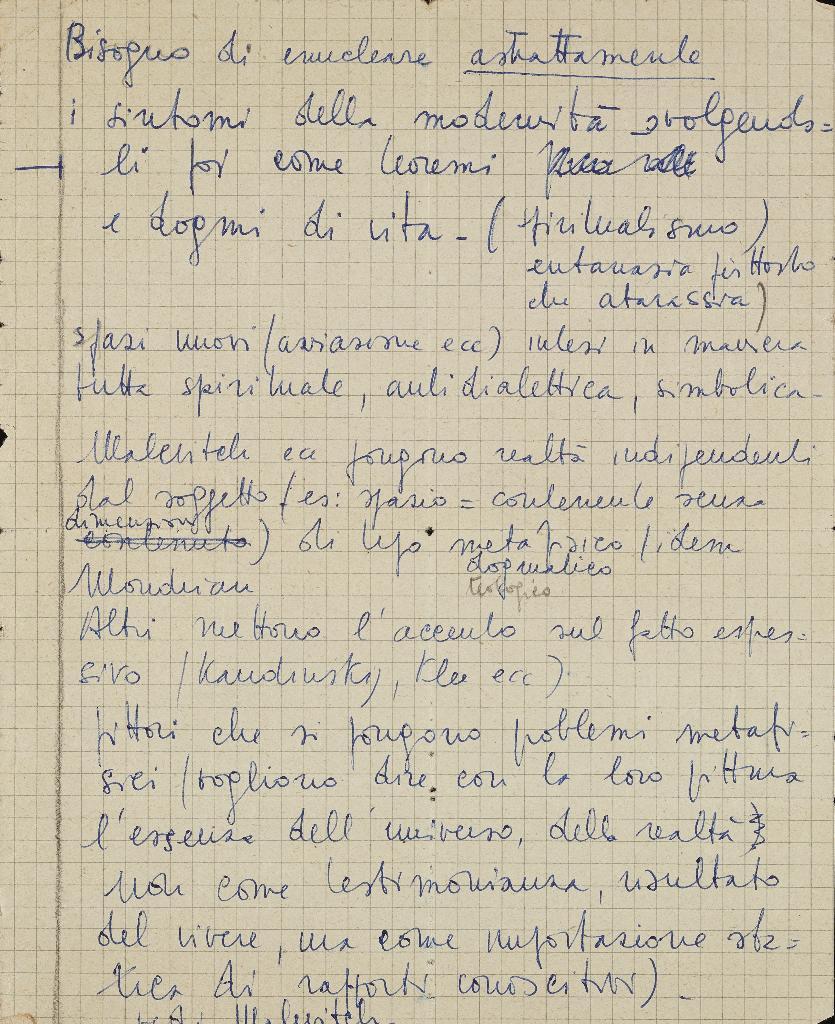 Bisogno di enucleare astrattamente
i sintomi della modernità svolgendo=
li poi come teoremi
e dogmi di vita - (spiritualismo)
eutanasia piuttosto
che atarassia)
spazi nuovi (aviazione ecc) intesi in maniera
tutta spirituale, antidialettica, simbolica -
Malevitch ecc pongono realtà indipendenti
dal soggetto (es: spazio = contenente senza
dimensioni
contenuto) di tipo metafisico (idem
dogmatico
teologico
Mondrian
Altri mettono l'accento sul fatto espres-
sivo (Kandinsky, Klee ecc).
pittori che si pongono problemi metafi=
sici (vogliono dire con la loro pittura
l'essenza dell'universo, della realtà
non come testimonianza, risultato
del vivere, ma come impostazione sta=
tica di rapporti conoscitivi) -
Malevitch.